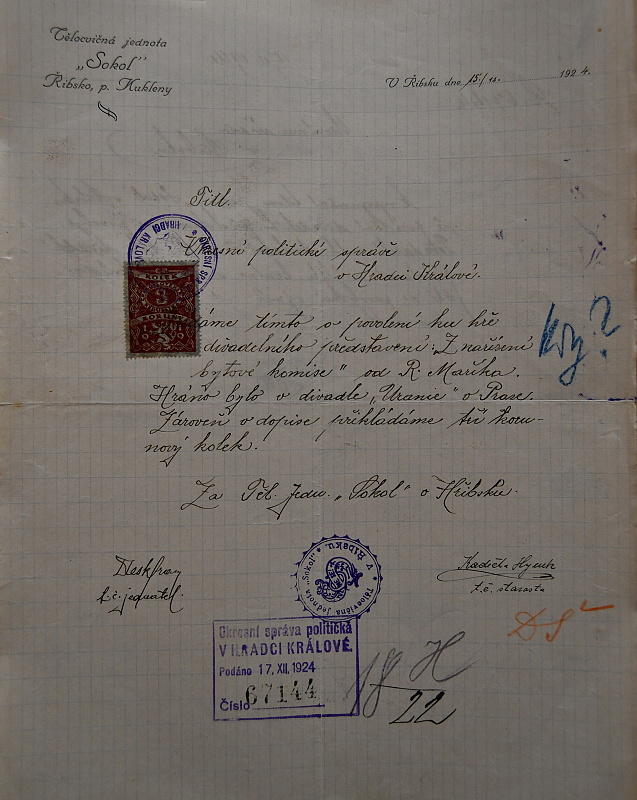 Tělocvičná jednota
„Sokol"
Řibsko, p. Kukleny
V Řibsku dne 15./12. 1924.
Titl.
Okresní politické správě
v Hradci Králové.
áme tímto o povolení ku hře
divadelního představení: „Z nařízení
bytové komise" od R. Maříka.
Hráno bylo v divadle „Uranie" v Praze.
Zároveň v dopise přikládáme tří koru-
nový kolek.
Za Těl. Jedn. „Sokol" v Hřibsku.
t.č. jednatel.
t.č. starosta
KOLEK
3
Tělocvičná Jednota „Sokol" v Řibsku.
Kdy?
Okresní správa politická
V HRADCI KRÁLOVÉ.
Podáno 17. XII. 1924
Číslo 67144
18 H
22